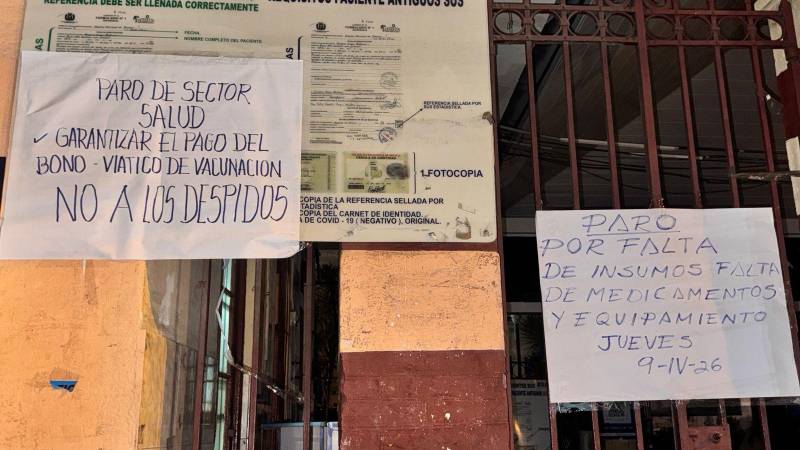 REFERENCIA DEBE SER LLENADA CORRECTAMENTE
REQUISITOS PACIENTE ANTIGUOS SUS
FECHA
NOMBRE COMPLETO DEL PACIENTE
REFERENCIA SELLADA POR
SUS ESTADISTICA
1.FOTOCOPIA
COPIA DE LA REFERENCIA SELLADA POR
ESTADISTICA
COPIA DEL CARNET DE IDENTIDAD.
DE COVID - 19 ( NEGATIVO ), ORIGINAL.
PARO DE SECTOR
SALUD
✓ GARANTIZAR EL PAGO DEL
BONO - VIATICO DE VACUNACION
NO A LOS DESPIDOS
PARO
POR FALTA
DE INSUMOS FALTA
DE MEDICAMENTOS
Y EQUIPAMIENTO
JUEVES
9-IV-26